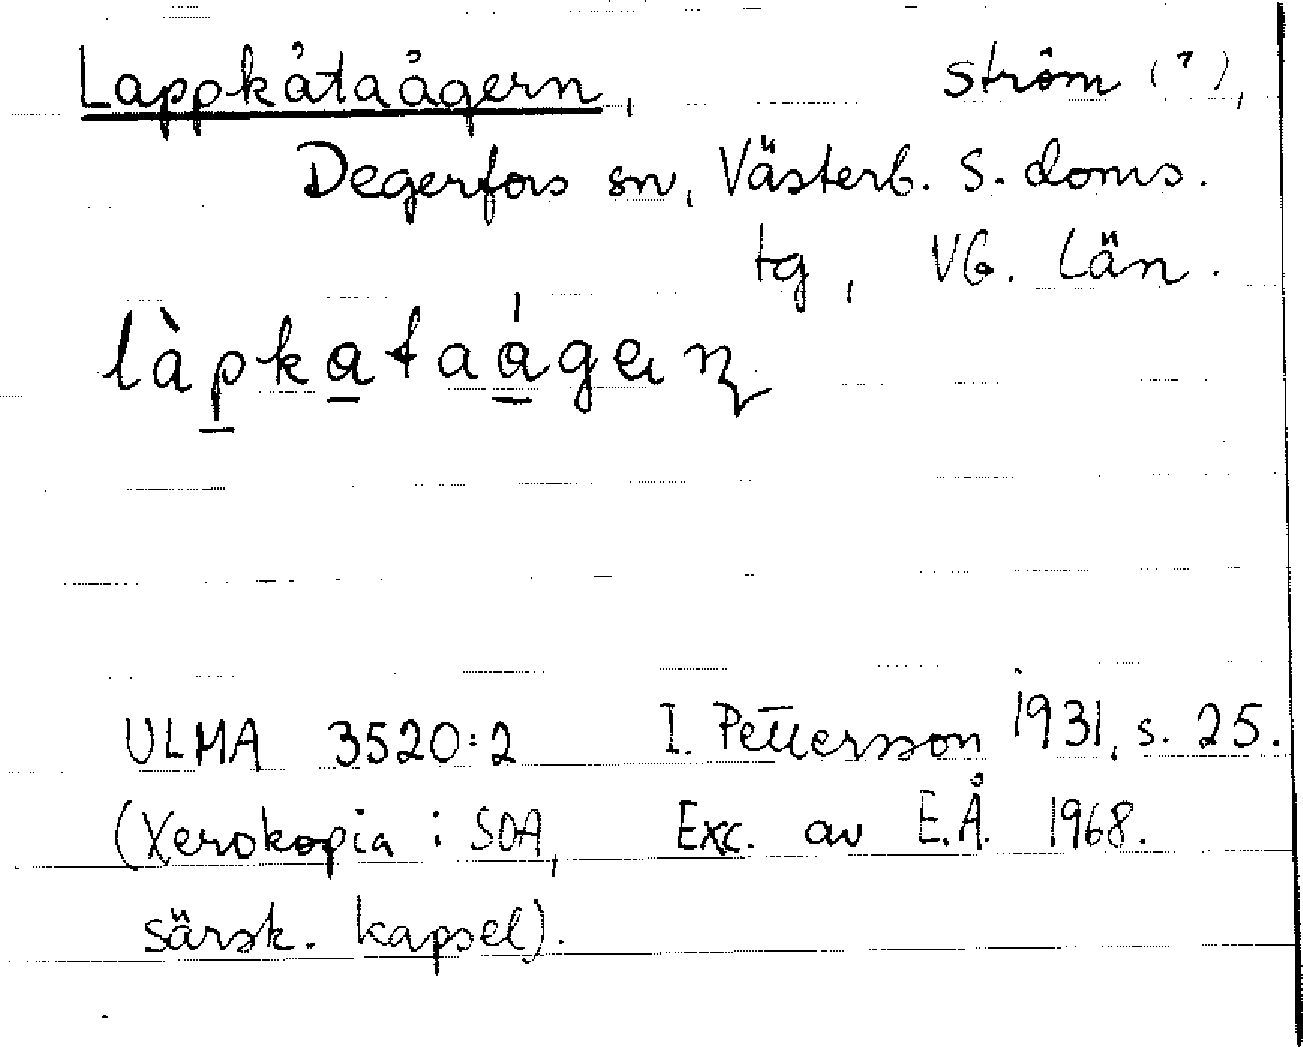 Lappkåtaågern, ström (?),
Degerfors sn, Västerb. s. doms.
tg, Vb. län.
làpkataágeṇ
ULMA 3520:2 I. Pettersson 1931, s. 25.
(Xerokopia i SOA, Exc. av E.Å. 1968.
särsk. kapsel).